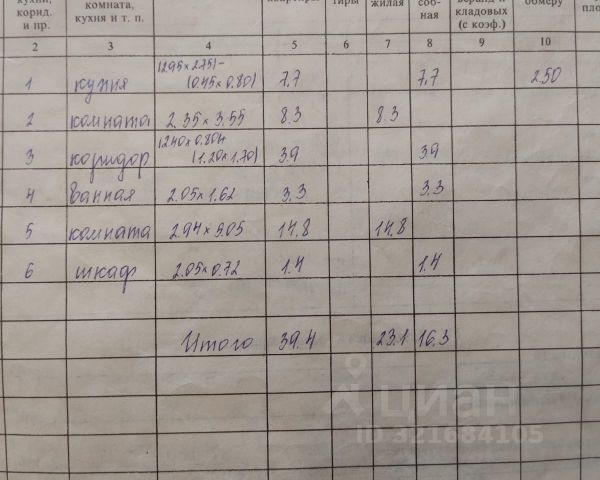 корид.
и пр.
комната,
кухня и т. п.
жилая
соб-
ная
кладовых
(с коэф.)
обмеру
2 3 4 5 6 7 8 9 10
1 кухня (2.95×2.75)-(0.45×0.80) 7,7 7,7 250
2 комната 2.35×3.55 8.3 8.3
3 коридор (1.20×1.70) 3.9 3.9
4 Ванная 2.05×1.62 3.3 3.3
5 комната 2.94×5.05 14.8 14.8
6 шкаф 2.05×0.72 1.4 1.4
Итого 39.4 23.1 16.3
циан
ID 321684105